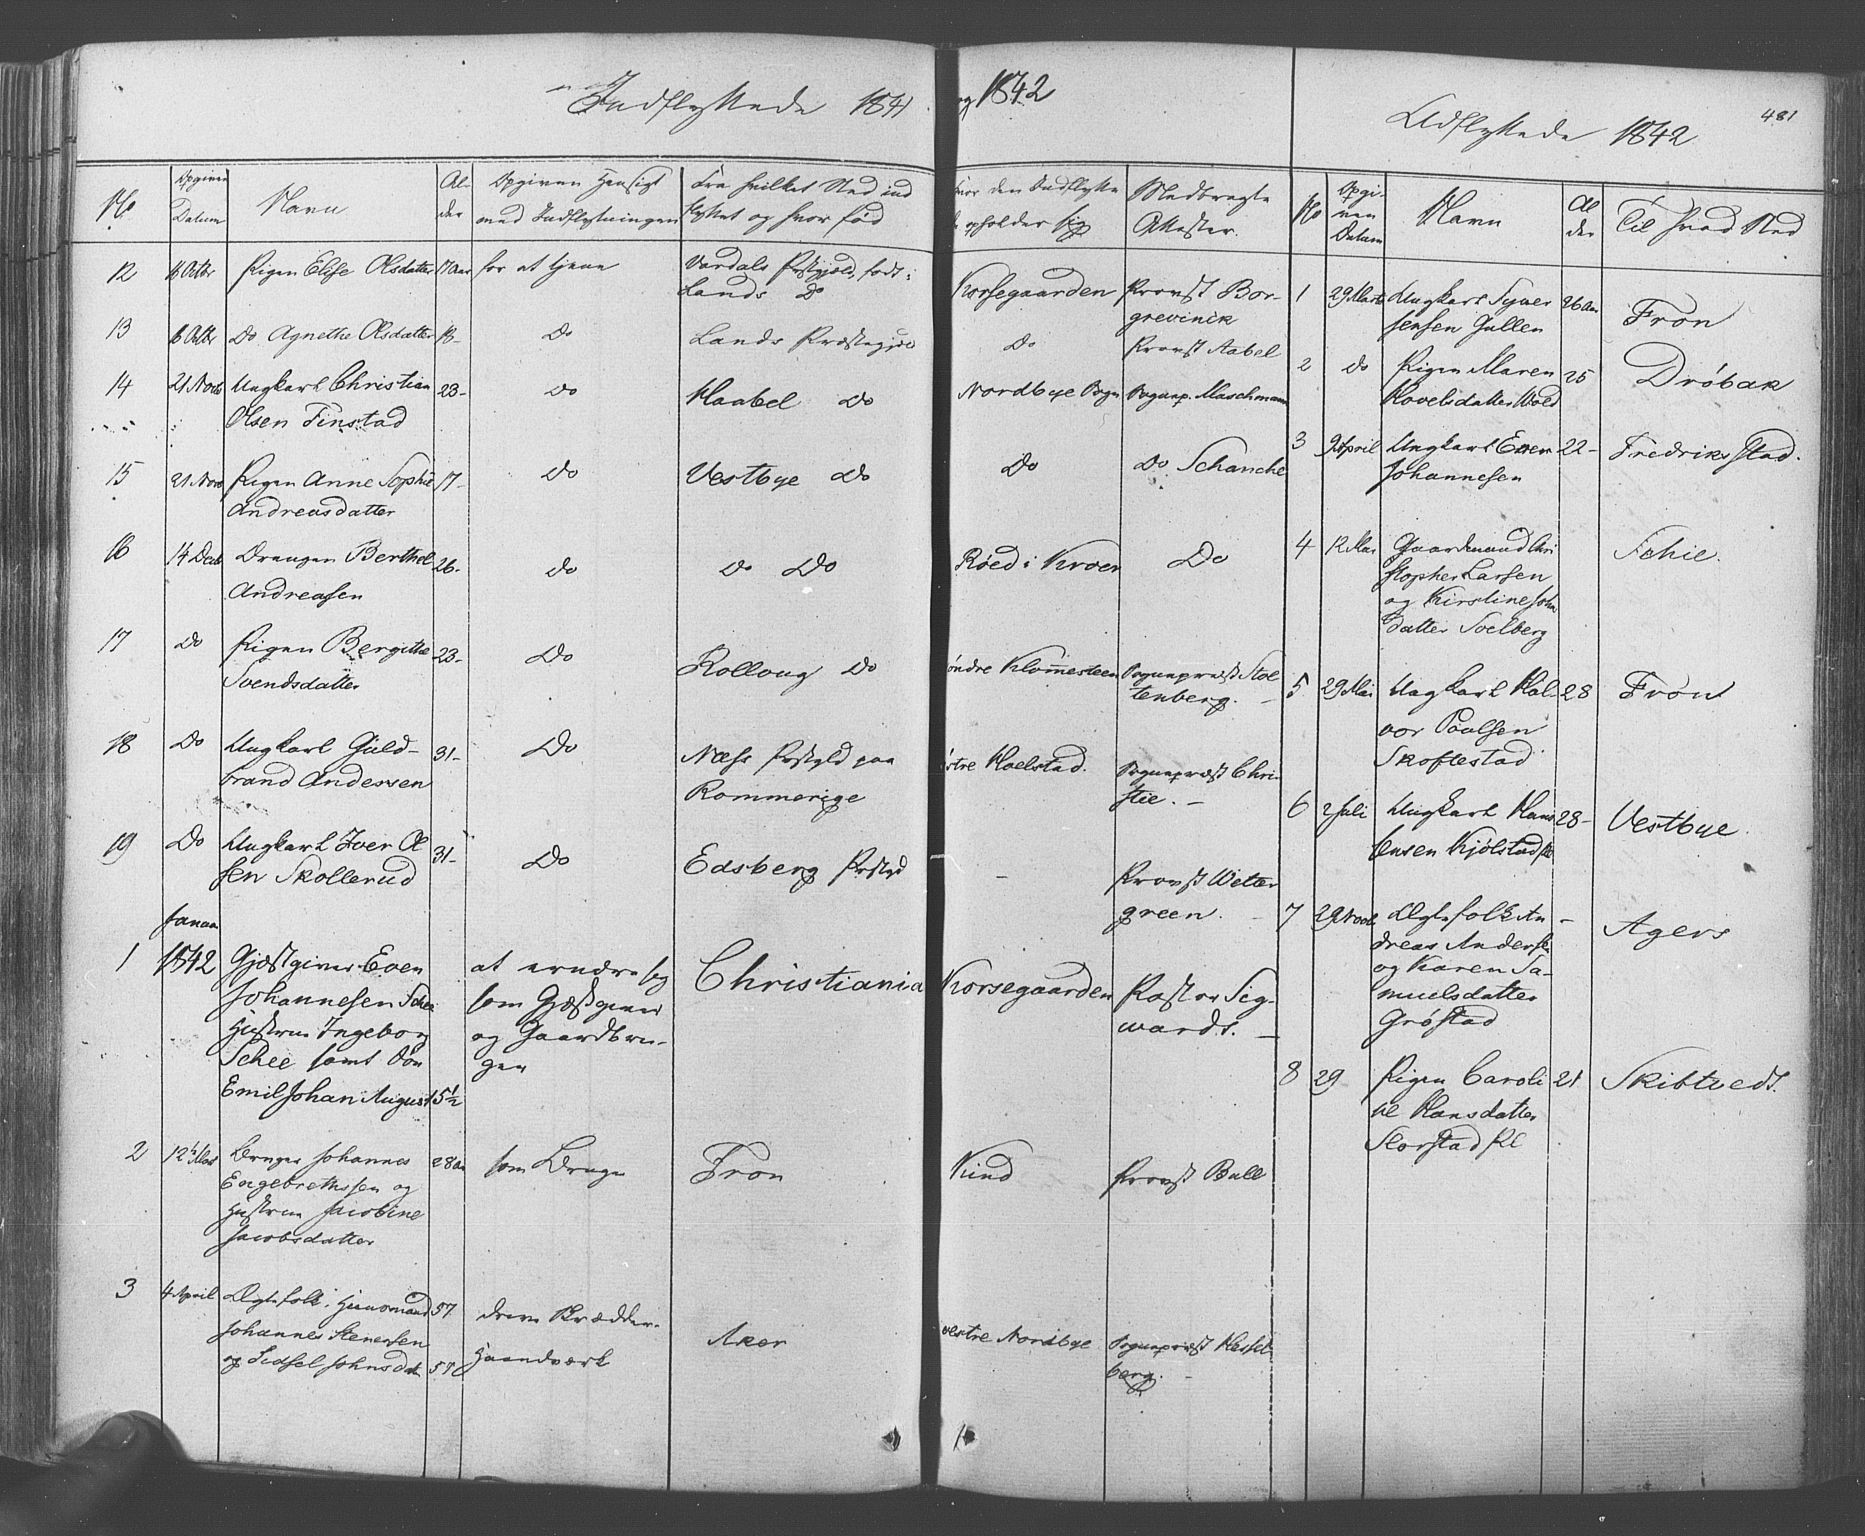 Indflyttede 1841
og 1842
Udflyttede 1842
481
No
Opgiven
Datum
Navn
Al-
der
Opgiven Hensigt
med Indflytningen
Fra hvilket Sted ind
flyttet og hvor fød
hvor den Indflytte
de opholder sig
Medbragte
Attester.
12
16 Octbr
Pigen Elise Olsdatter
17 Aar
for at tjene
Vardals Prstgjeld, født i
Lands Do
Korsegaarden
Provst Bor-
grevinck
13
16 Octbr
Do Agnethe Olsdatter
18-
Do
Lands Præstegjeld
Do
Provst Aabel
14
21 Novb
Ungkarl Christian
Olsen Finstad
23-
Do
Haabel Do
Nordbye Sogn
Sognep. Maschmann
15
21 Novb
Pigen Anne Sophie
Andreasdatter
17-
Do
Vestbye Do
Do
Do Schanche
16
14 Decb
Drengen Berthel
Andreasen
26-
Do
Do Do
Røed i Kroer
Do
17
Do
Pigen Bergithe
Svendsdatter
23-
Do
Kolloug Do
søndre Klommesteen
Sognepræst Stol
tenberg.
18
Do
Ungkarl Guld-
brand Andersen
31-
Do
Næss Prstgld paa
Rommerige
østre Holstad.
Sognepræst Chri-
stie. -
19
Do
Ungkarl Iver Ol
sen Skollerud
31-
Do
Edsberg Prstgd
-
Provst Wetter
green.
Januar
1
1842
Gjæstgiver Even
Johannesen Schee
Hustrue Ingeborg
Schee samt Søn
Emil Johan August 5½
at ernære sig
som Gjæstgiver
og Gaardbru-
ger
Christiania
Korsegaarden
Pastor Sig-
wardt. -
2
12t Mai
Bruger Johannes
Engebrethssen og
Hustrue Jacobine
Jacobsdatter
28 Aar
som Bruger
Fron
Kind
Provst Bull
3
4 April
Ægtefolk, Huusmand
Johannes Stenersen
og Sidsel Johnsdatr
57
57
drive Skrædder-
Haandværk
Aker
vestre Nordbye
Sognepræst Hassel
berg. -
No
Opgi-
ven
Datum
Navn
Al
der
Til hvad Sted
1
29 Marts
Ungkarl Syver
Jensen Gullen
26 Aar
Fron
2
do
Pigen Maren
Hovelsdatter Wold
25
Drøbak
3
9 April
Ungkarl Even
Johannesen
22-
Fredriksstad.
4
12 Mai
Gaardmand Chri
stopher Larsen
og Kirstine Joha
datter Solberg
Schie.
5
29 Mai
Ungkarl Hal-
vor Paalsen
Skoftestad
28
Fron
6
2 Juli
Ungkarl Hans
Jensen Kjølstad
28-
Vestbye
7
29 Novb
Ægtefolk An
dreas Andersen
og Karen Sa-
muelsdatter
Grøstad
-
Agers
8
29
Pigen Caroli
ne Hansdatter
Storstad
21
Skibtvedt.